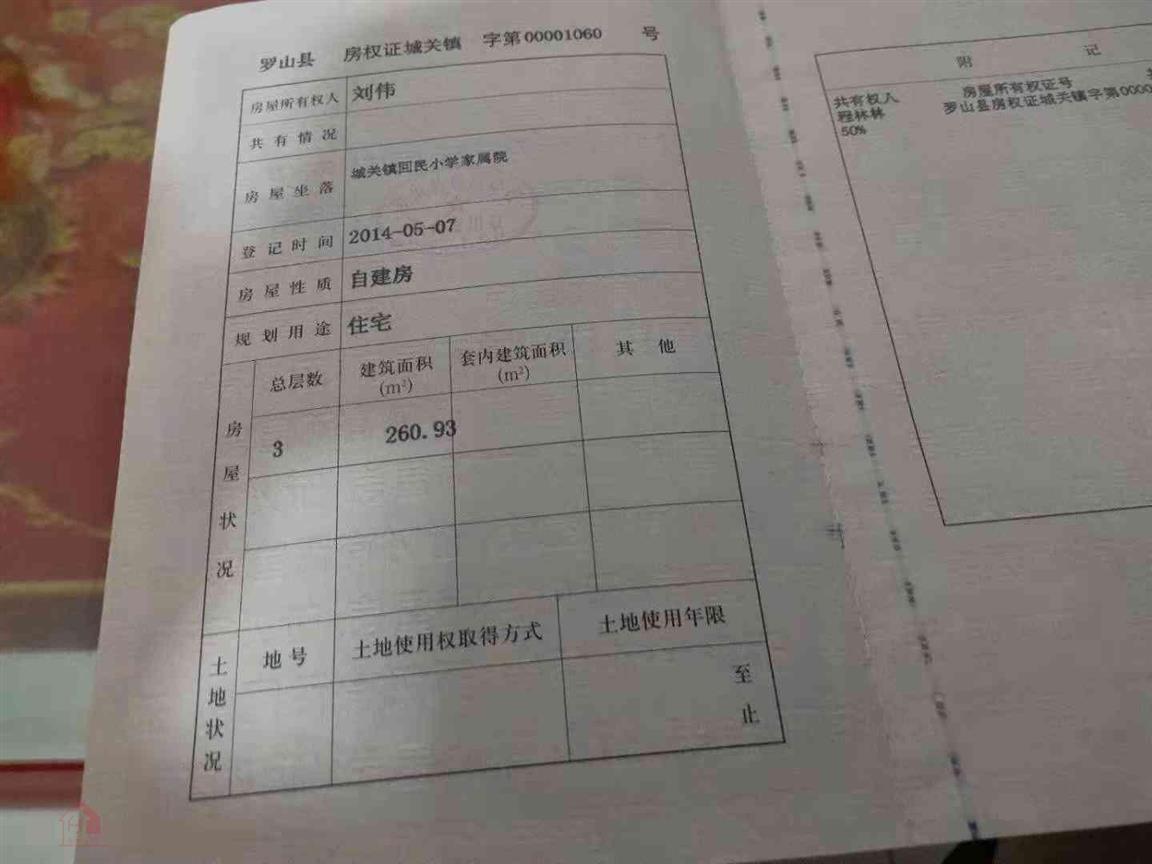 罗山县 房权证城关镇 字第00001060 号
房屋所有权人 刘伟
共有情况
房屋坐落 城关镇回民小学家属院
登记时间 2014-05-07
房屋性质 自建房
规划用途 住宅
房屋状况
总层数 建筑面积(m²) 套内建筑面积(m²) 其他
3 260.93
土地状况
地号 土地使用权取得方式 土地使用年限
至
止
附 记
共有权人 房屋所有权证号
程林林 罗山县房权证城关镇字第0000
50%